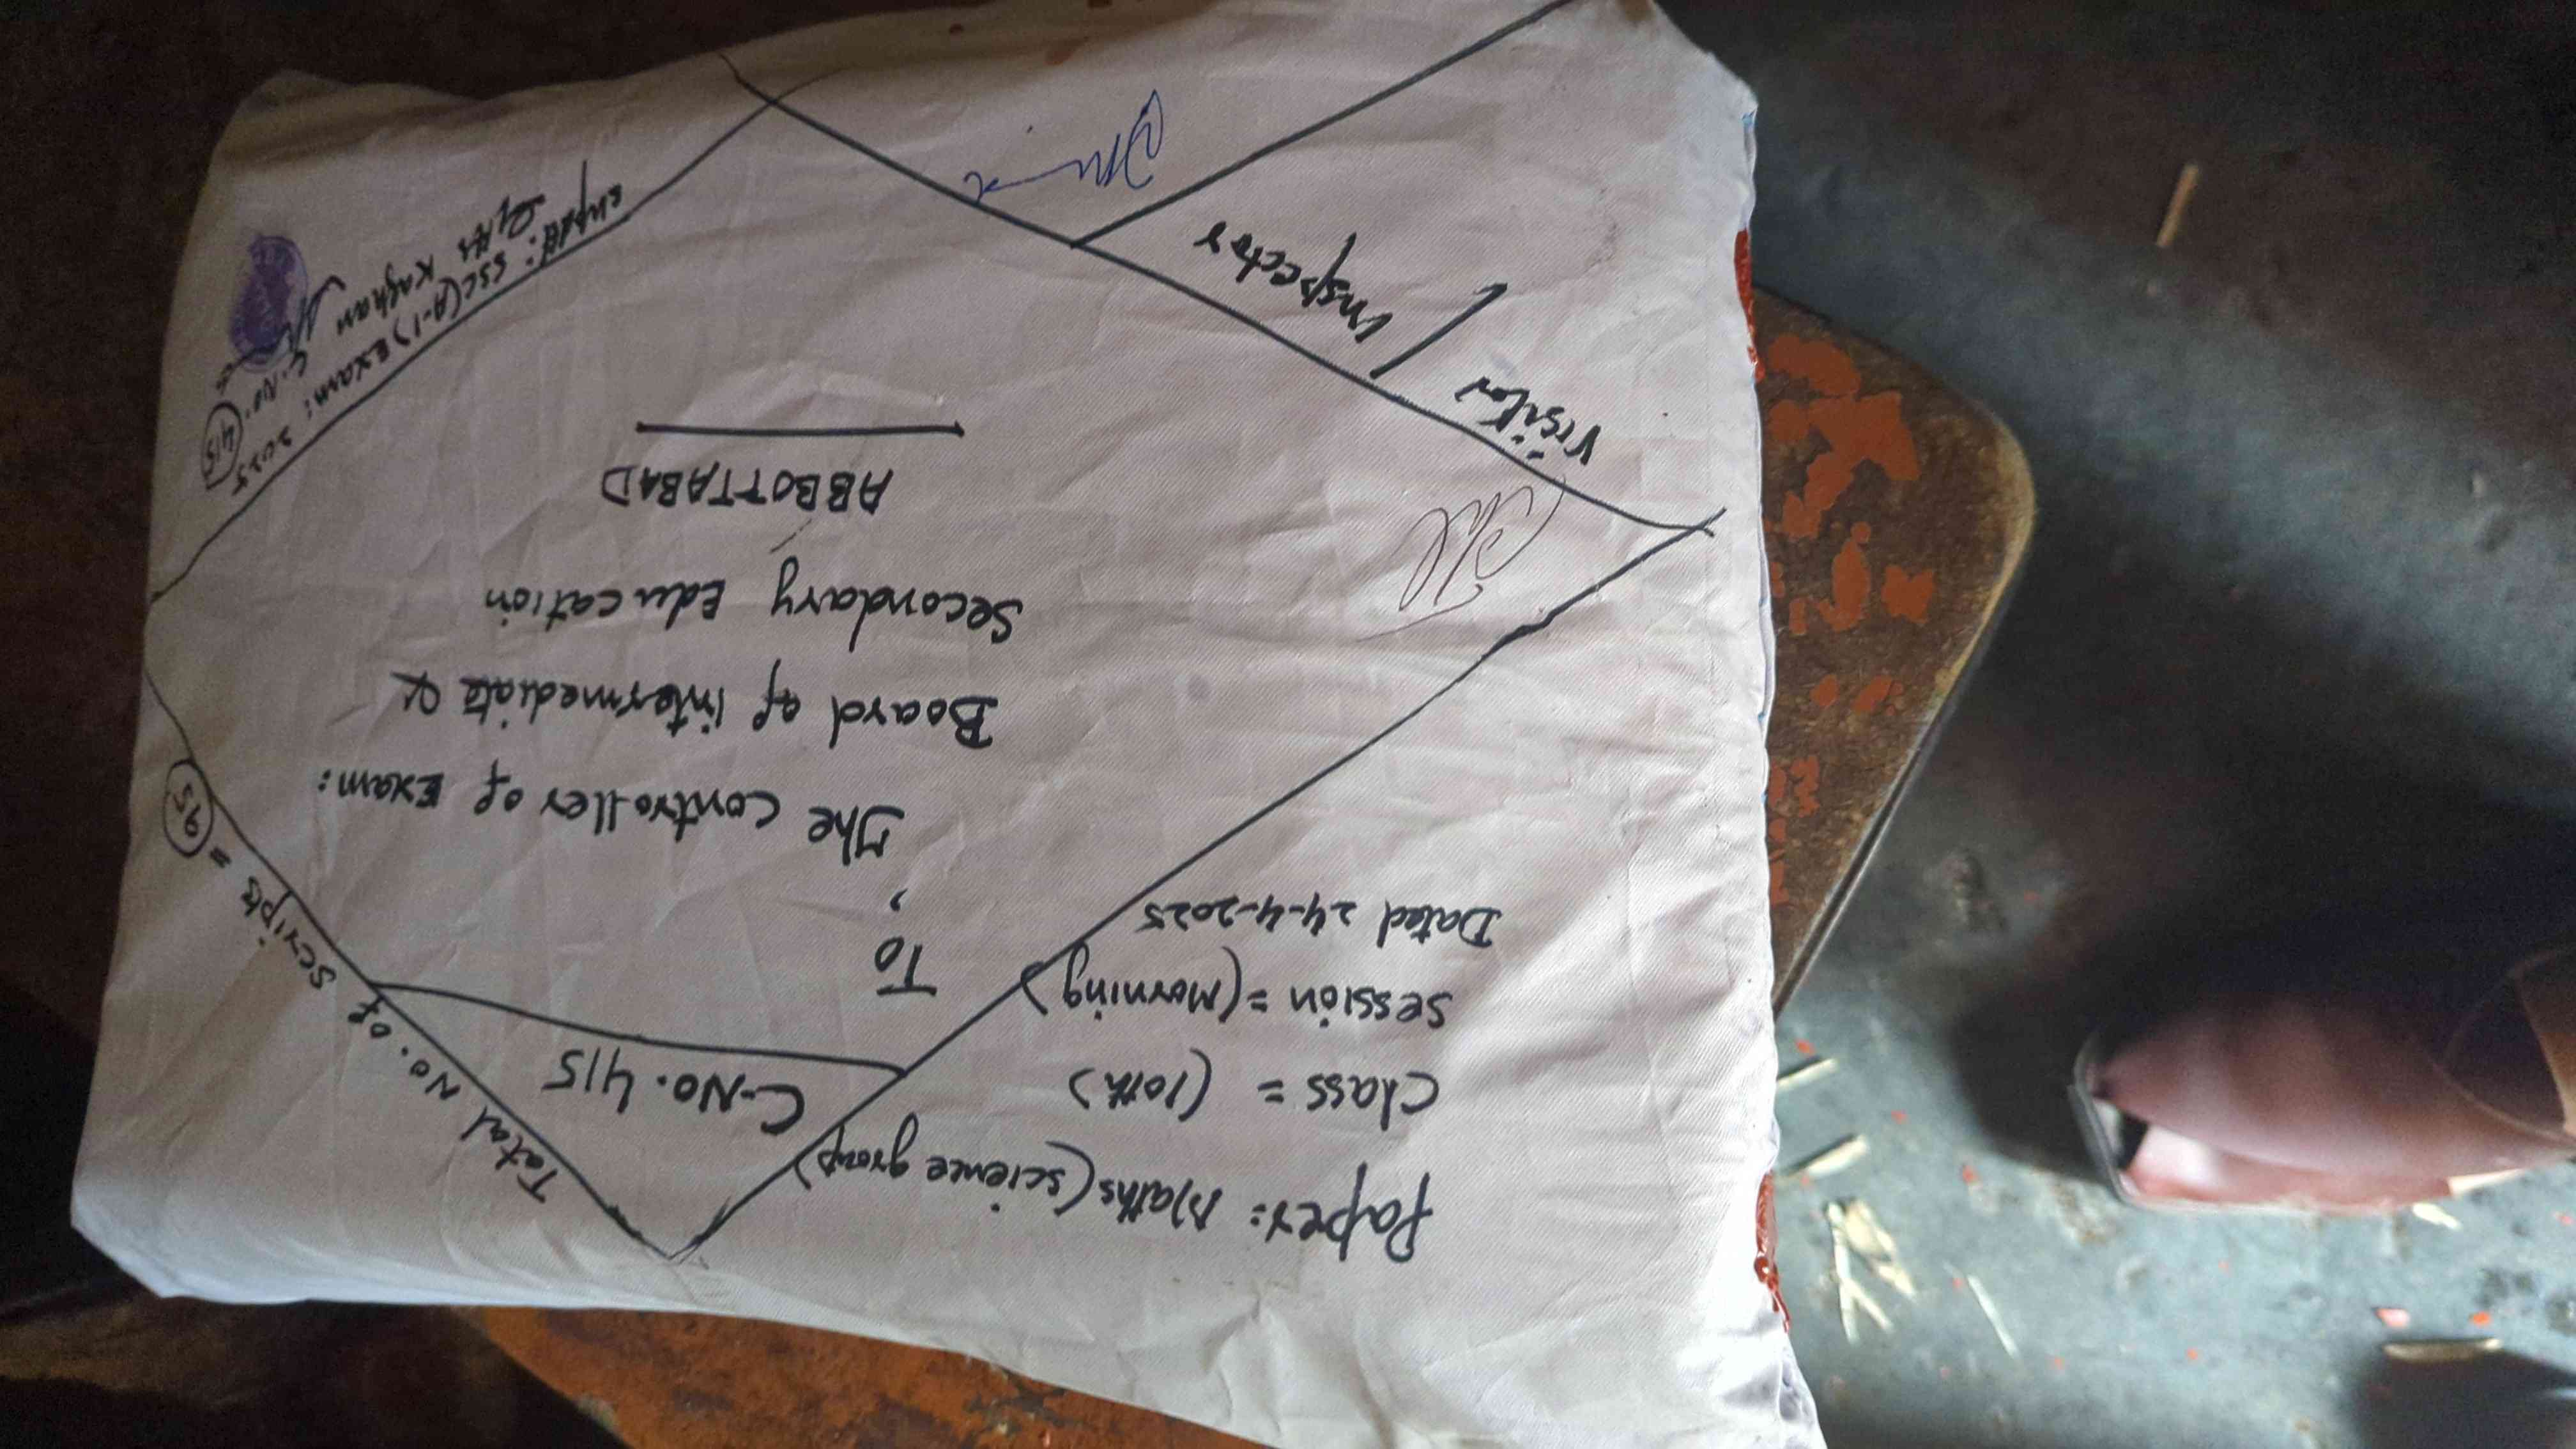 Paper: Maths (science group)
Class = (10th)
Session = (Morning)
Dated 24-4-2025
C-No. 415
Total No. of Scripts = 95
To,
The Controller of Exam:
Board of Intermediate &
Secondary Education
ABBOTTABAD
Visitor
Inspector
Supdtt: SSC (A-1) Exam: 2025
GHS Kaghan
C.No. 415